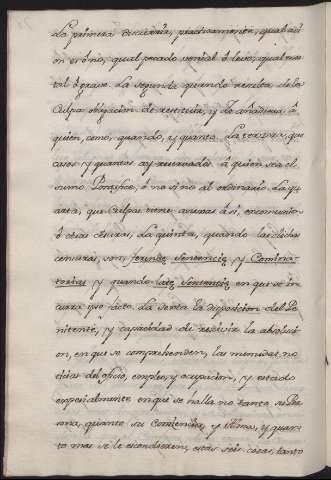 La primera discernir, practicamente, qual acci
on es ônis, qual pecado venial ô leve, qual mor
tal ô grave. La segunda quando resulta de la
Culpa obligacion de restituir, y La añadidura â
quien, como, quando, y quanto. La tercera que
casos y quantos ay reservados â quien sea el
sumo Pontifice, ô no sino al ordinario. La qu
arta, que Culpas tiene anexas â si, excomunion
ô otras censuras. La quinta, quando las dichas
censuras son ferendæ sententiæ, y Comina-
torias y quando latæ sententiæ en que se in
curra ipso facto. La sexta la disposicion del Pe
nitente, y capacidad de recivir la absoluci
on, en que se comprehenden, las menudas no
ticias del oficio, empleo, y ocupacion, y estado
especialmente en que se halla no tanto su Per
sona, quanto su Conciencia, y Alma, y quan
to mas se le escondieren, estas seis cosas, tanto